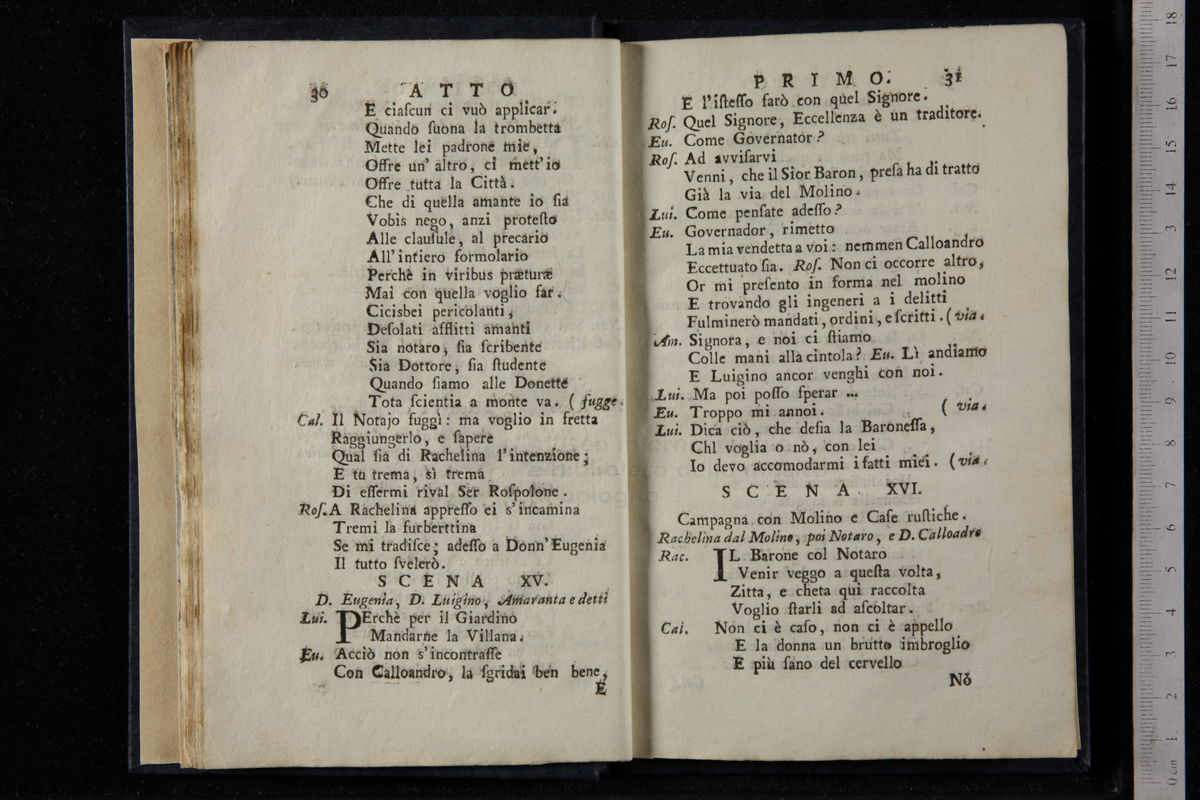 30 ATTO
E ciaſcun ci vuò applicar.
Quando ſuona la trombetta
Mette lei padrone mie,
Offre un' altro, ci mett'io
Offre tutta la Città.
Che di quella amante io ſia
Vobis nego, anzi proteſto
Alle clauſule, al precario
All' intiero formolario
Perchè in viribus præturæ
Mai con quella voglio far.
Cicisbei pericolanti,
Deſolati afflitti amanti
Sia notaro, ſia ſcribente
Sia Dottore, ſia ſtudente
Quando ſiamo alle Donette
Tota ſcientia a monte va. ( fugge.
Cal. Il Notajo fuggì: ma voglio in fretta
Raggiungerlo, e ſapere
Qual ſia di Rachelina l'intenzione;
E tu trema, sì trema
Di eſſermi rival Ser Roſpolone.
Roſ. A Rachelina appreſſo ei s'incamina
Tremi la furberttina
Se mi tradiſce; adeſſo a Donn' Eugenia
Il tutto ſvelerò.
SCENA XV.
D. Eugenia, D. Luigino, Amaranta e detti
Lui. PErchè per il Giardino
Mandarne la Villana.
Eu. Acciò non s'incontraſſe
Con Calloandro, la ſgridai ben bene,
E
PRIMO. 31
E l'iſteſſo farò con quel Signore.
Roſ. Quel Signore, Eccellenza è un traditore.
Eu. Come Governator?
Roſ. Ad avviſarvi
Venni, che il Sior Baron, preſa ha di tratto
Già la via del Molino.
Lui. Come penſate adeſſo?
Eu. Governador, rimetto
La mia vendetta a voi: nemmen Calloandro
Eccettuato ſia. Roſ. Non ci occorre altro,
Or mi preſento in forma nel molino
E trovando gli ingeneri a i delitti
Fulminerò mandati, ordini, e ſcritti. ( via.
Am. Signora, e noi ci ſtiamo
Colle mani alla cintola? Eu. Lì andiamo
E Luigino ancor venghi con noi.
Lui. Ma poi poſſo ſperar ...
Eu. Troppo mi annoi. ( via.
Lui. Dica ciò, che deſia la Baroneſſa,
Chl voglia o nò, con lei
Io devo accomodarmi i fatti miei. ( via.
SCENA XVI.
Campagna con Molino e Caſe ruſtiche.
Rachelina dal Molino, poi Notaro, e D. Calloadro
Rac. IL Barone col Notaro
Venir veggo a queſta volta,
Zitta, e cheta qui raccolta
Voglio ſtarli ad aſcoltar.
Cal. Non ci è caſo, non ci è appello
E la donna un brutto imbroglio
E più ſano del cervello
Nó